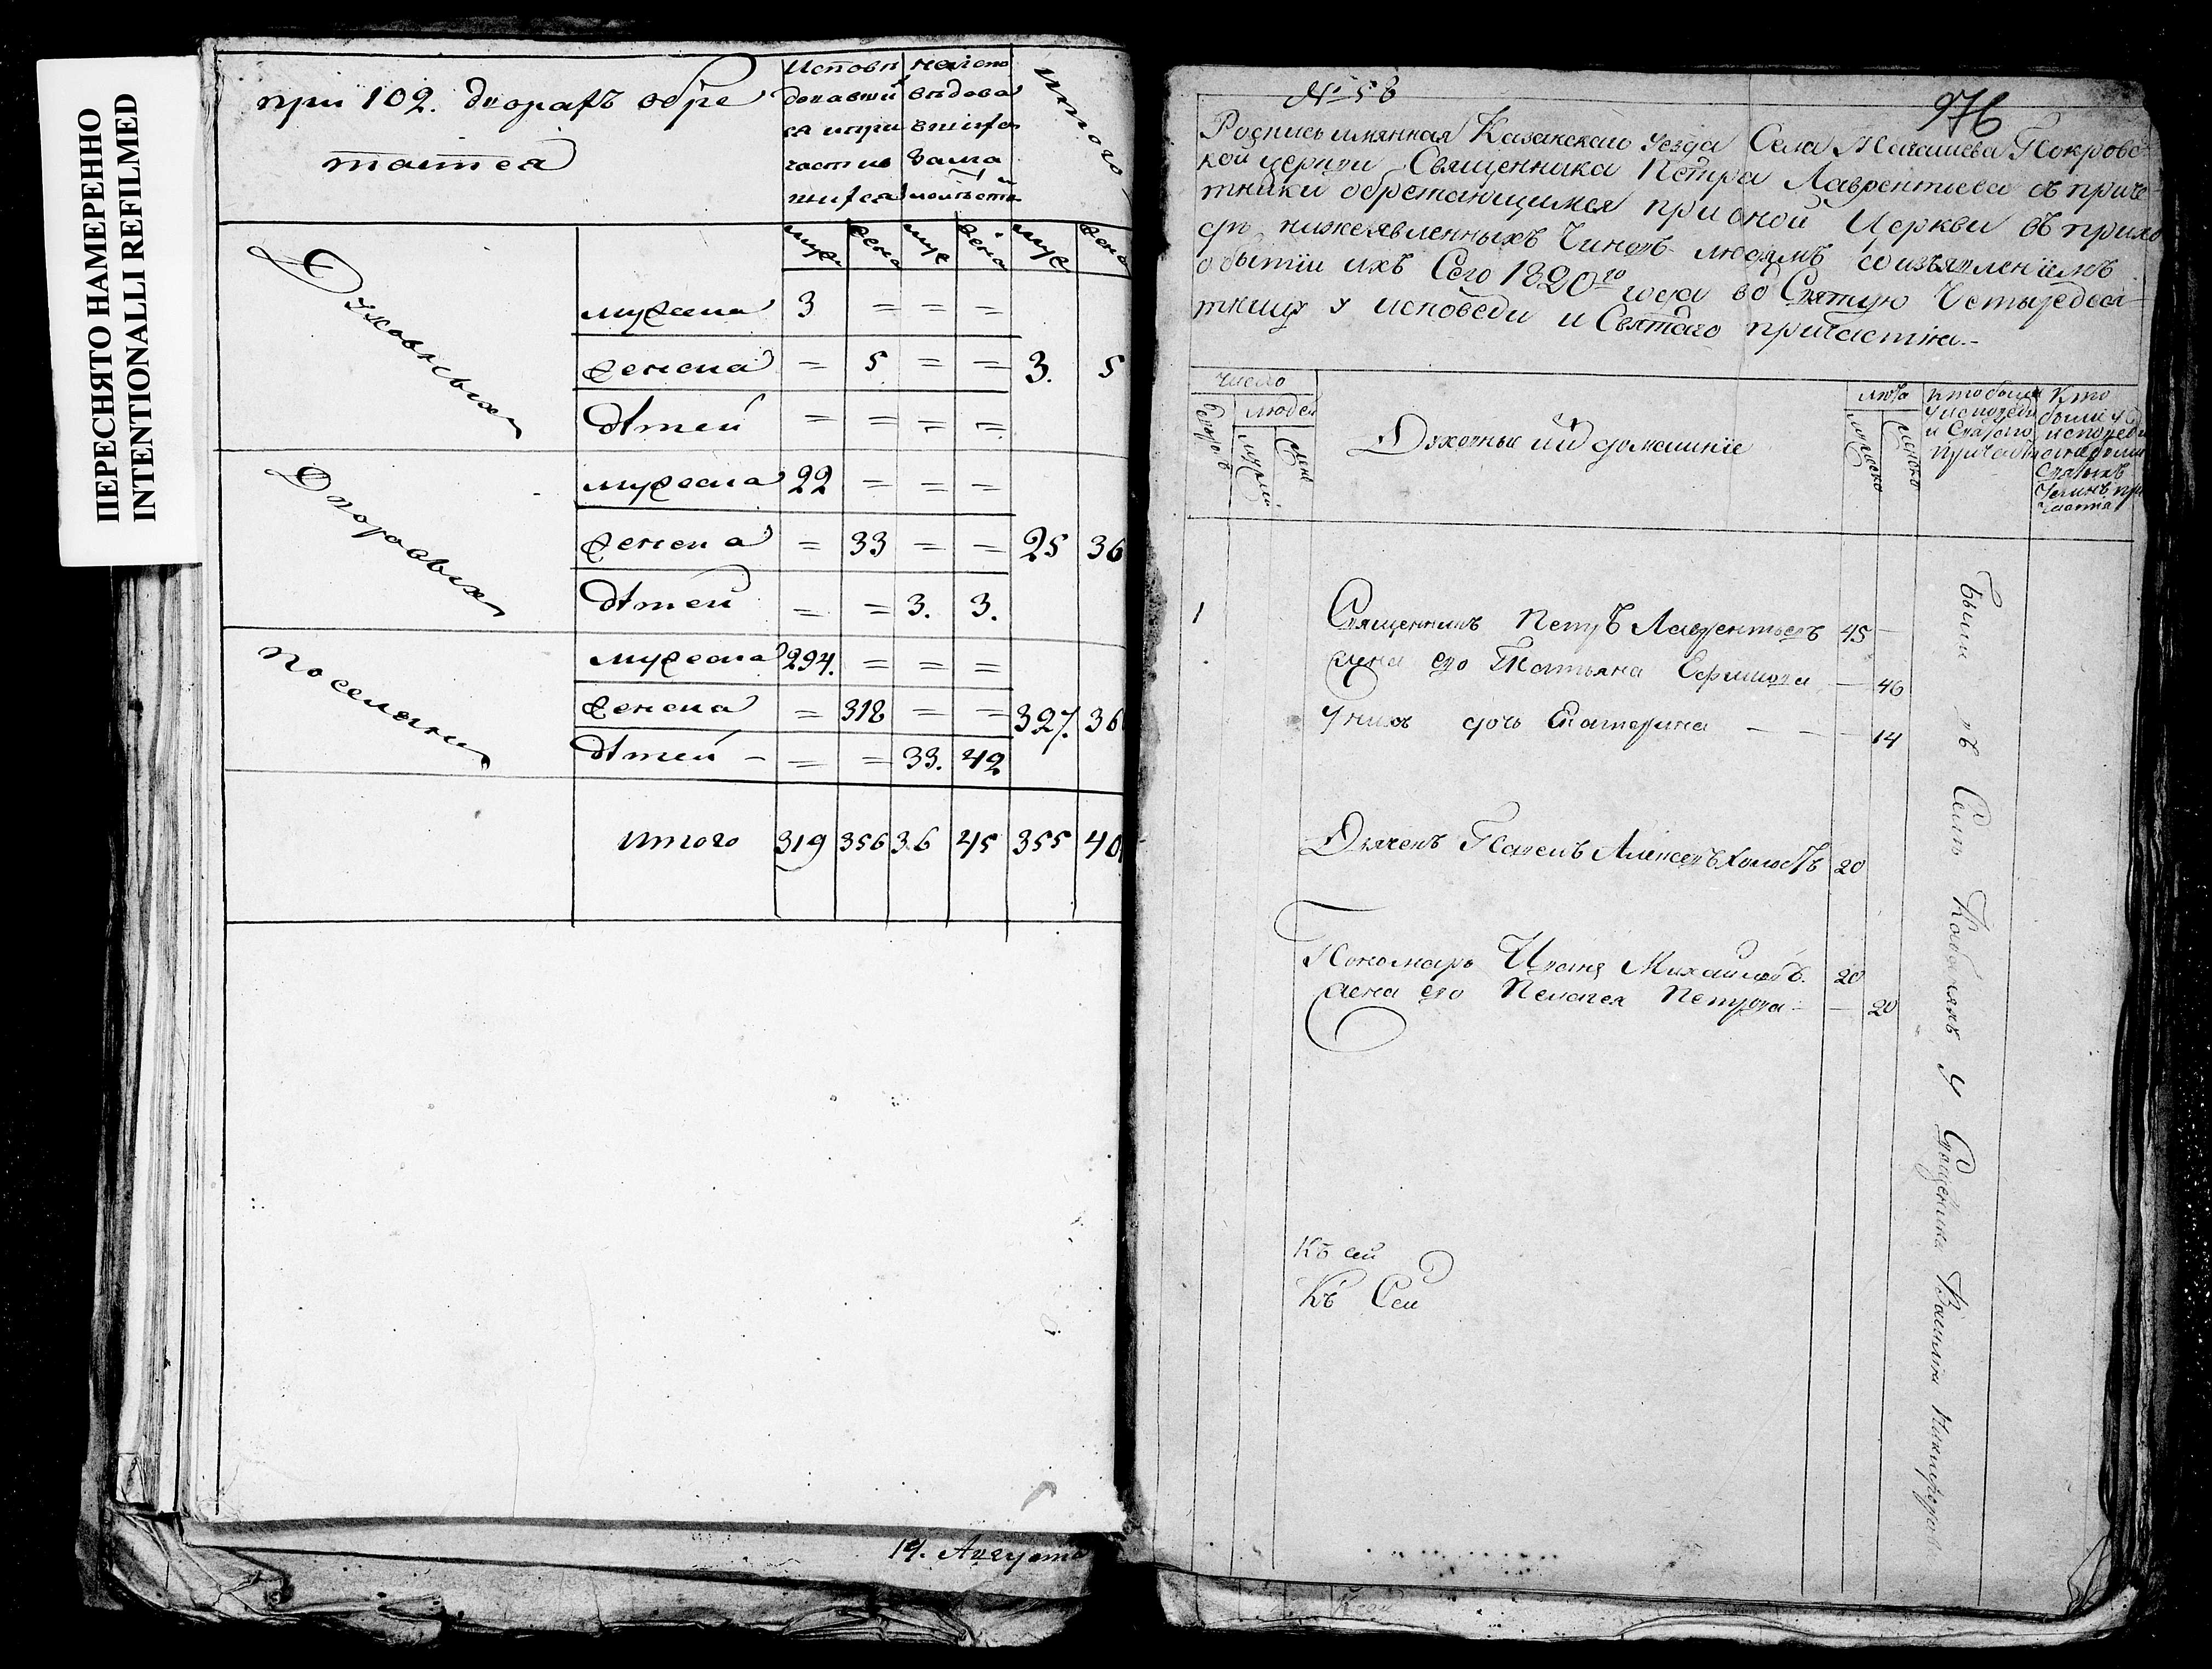 ПЕРЕСНЯТО НАМЕРЕННО
INTENTIONALLI REFILMED
при 102. дворахъ обре
тается
Исповѣ
давшихся и при
частив
шихся
неиспо
вѣдова
вшихся
за мало
лѣтст
итого
муже жена муж жена муж жена
Духовныхъ
мужеска 3 = = =
женска = 5 = = 3. 5
дѣтей = = = =
Дворовыхъ
мужеска 22 = = =
женска = 33 = = 25 36
дѣтей = = 3. 3.
поселянъ
мужеска 294. = = =
женска = 318 = = 327. 36
дѣтей - = = 33. 42
итого 319 356 36 45 355 40
19. Августа
№ 58
976
Роспись имянная Казанскаго уезда Села Покровс
кой церкви Священника Петра Лаврентиева съ приче
тники обретающимся при оной Церкви въ прихо
дѣ нижеявленныхъ чиновъ людямъ соизъявленіемъ
о бытіи ихъ Сего 1820го года во Святую Четыредеся
тницу у исповеди и Святаго причастия.-
число
дворовъ
людей
мужеск
женс
Духовныи и ихъ домашніе
лѣта
мужеско
женско
кто были
у исповеди
и Святаго
причастия
Кто
были у
исповеди
а не были
Святыхъ
Таинъ при
частія
1 Священникъ Петръ Лаврентьевъ 45 -
жена его Татьяна Ефимова - 46
У нихъ дочь Екатерина - - - 14
Дьячекъ Павелъ Алексеевъ холостъ 20
Пономарь Иванъ Михайловъ. 20
жена его Пелагея Петрова - - 20
Были въ Селѣ у Священника Василія Никифорова
Къ сей
Къ Сей